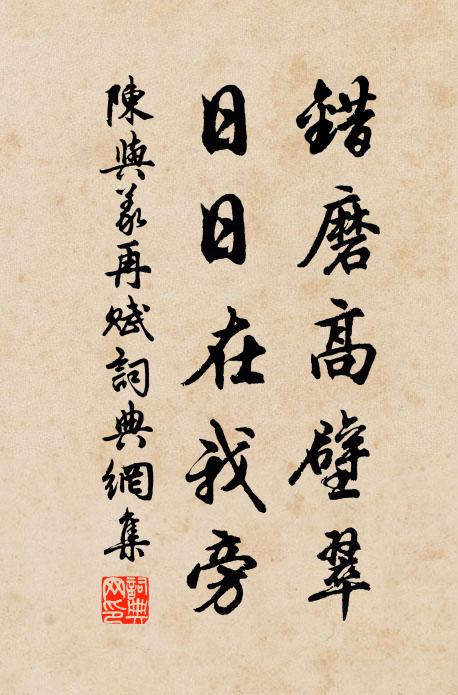 錯磨高壁翠
日日在我旁
陳與義再賦詞典網集
詞典網印